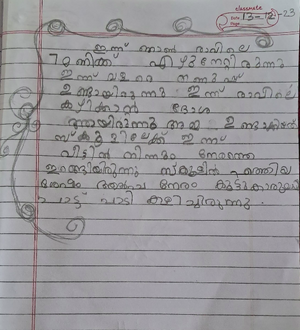 classmate
Date 13-12-23
Page
ഇന്ന് ഞാൻ രാവിലെ
7 മണിക്ക് എഴുന്നേറ്റിരുന്നു
ഇന്ന് വളരെ തണുപ്പ്
ഉണ്ടായിരുന്നു ഇന്ന് രാവിലെ
കഴിക്കാൻ ദോശ
ആയിരുന്നു അമ്മ
സ്കൂളിലേക്ക് ഇന്ന്
വീട്ടിൽ നിന്നും നേരത്തെ
ഇറങ്ങിയിരുന്നു സ്കൂളിൽ എത്തിയ
നേരം
പാട്ട് പാടി കളിച്ചിരുന്നു.